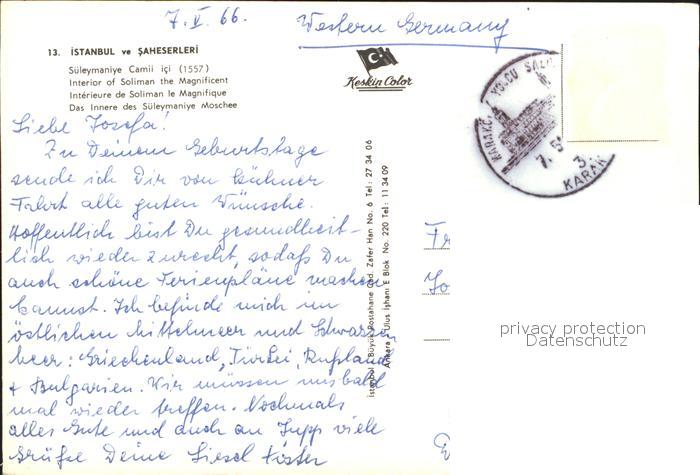 7. V. 66.
Western Germany
13. İSTANBUL ve ŞAHESERLERİ
Süleymaniye Camii içi (1557)
Interior of Soliman the Magnificent
Intérieure de Soliman le Magnifique
Das Innere des Süleymaniye Moschee
Keskin Color
Liebe Josefa!
Zu Deinem Geburtstage
sende ich Dir von kühner
Fahrt alle guten Wünsche.
Hoffentlich bist Du gesundheit-
lich wieder zurecht, sodaß Du
auch schöne Ferienpläne machen
kannst. Ich befinde mich im
östlichen Mittelmeer und Schwarzen
Meer: Griechenland, Türkei, Rußland
+ Bulgarien. Wir müssen uns bald
mal wieder treffen. Nochmals
alles Gute und auch an Jupp viele
Grüße Deine Liesel Köster
İstanbul : Büyük Postahane Cad. Zafer Han No. 6 Tel : 27 34 06
Ankara : Ulus İşhanı E Blok No. 220 Tel : 11 34 09
YOLCU SALO
7. 5
3.
KARAK
Fr
Jo
privacy protection
Datenschutz